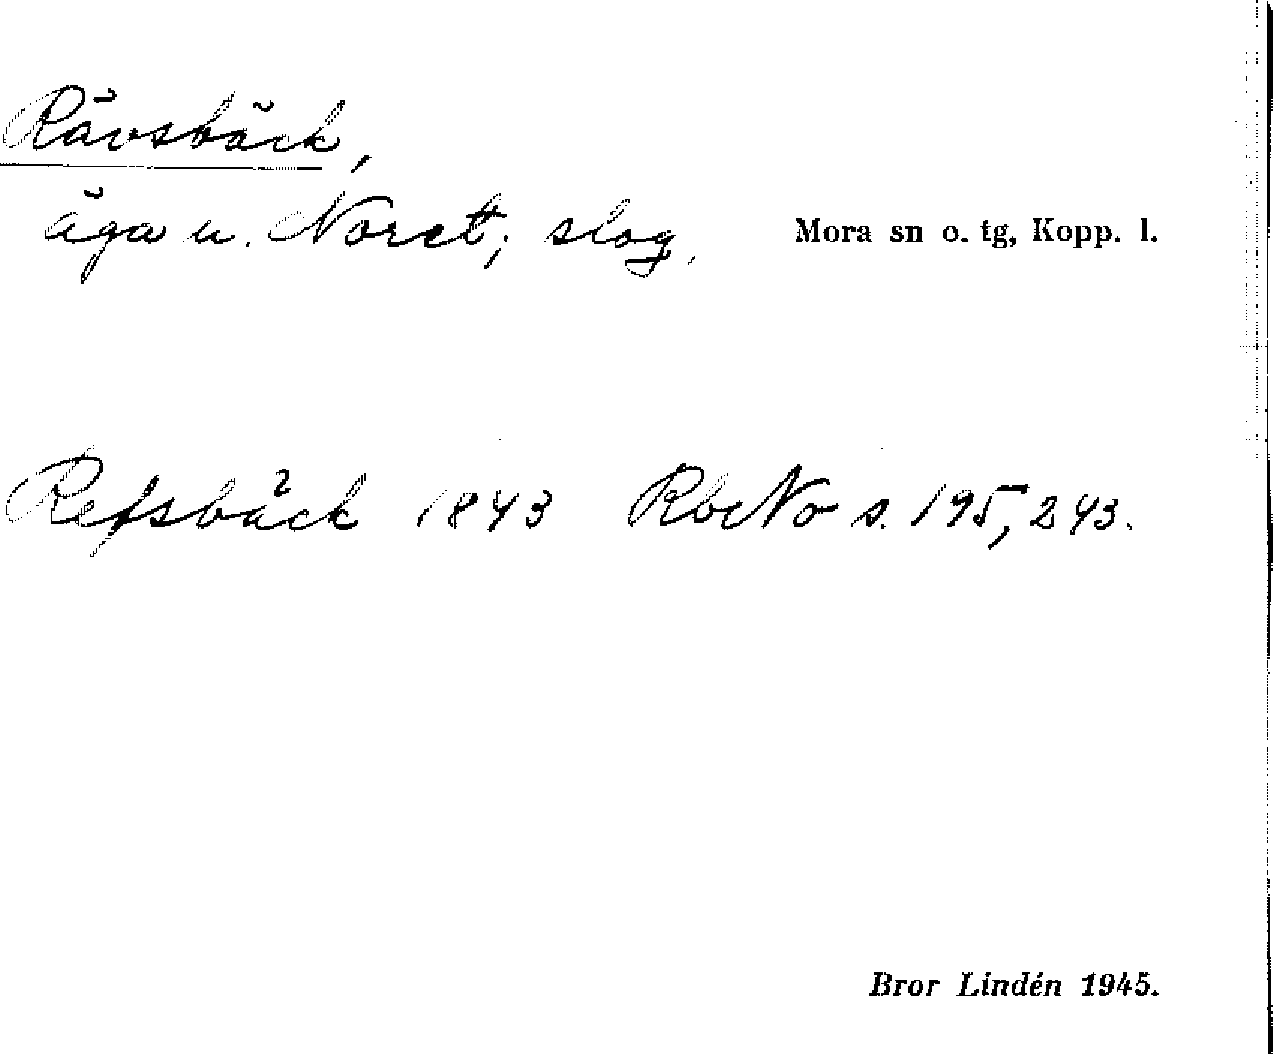 Rävsbäck,
äga u. Noret; slog.
Mora sn o. tg, Kopp. l.
Refsbäck 1843 RbcNo s. 195, 243.
Bror Lindén 1945.